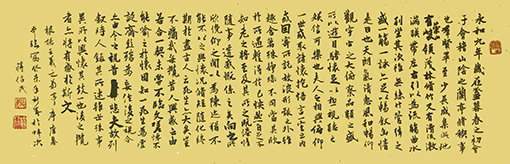 永和九年歲在癸丑暮春之初
于會稽山陰之蘭亭脩禊事
也群賢畢至少長咸集此地
有崇山峻領茂林脩竹又有清流激
湍暎帶左右引以為流觴曲水
列坐其次雖無絲竹管弦之盛
一觴一詠亦足以暢敘幽情
是日也天朗氣清惠風和暢仰
觀宇宙之大俯察品類之盛
所以遊目騁懷足以極視聽之
娛信可樂也夫人之相與俯仰
一世或取諸懷抱悟言一室之內
或因寄所託放浪形骸之外雖
趣舍萬殊靜躁不同當其欣
於所遇蹔得於己快然自足不
知老之將至及其所之既惓情
隨事遷感慨係之矣向之所
欣俛仰之間以為陳迹猶不
能不以之興懷況脩短隨化終
期於盡古人云死生亦大矣豈
不痛哉每攬昔人興感之由
若合一契未嘗不臨文嗟悼不
能喻之於懷固知一死生為虛
誕齊彭殤為妄作後之視今
亦由今之視昔悲夫故列
敘時人錄其所述雖世殊事
異所以興懷其致一也後之攬
者亦將有感於斯文